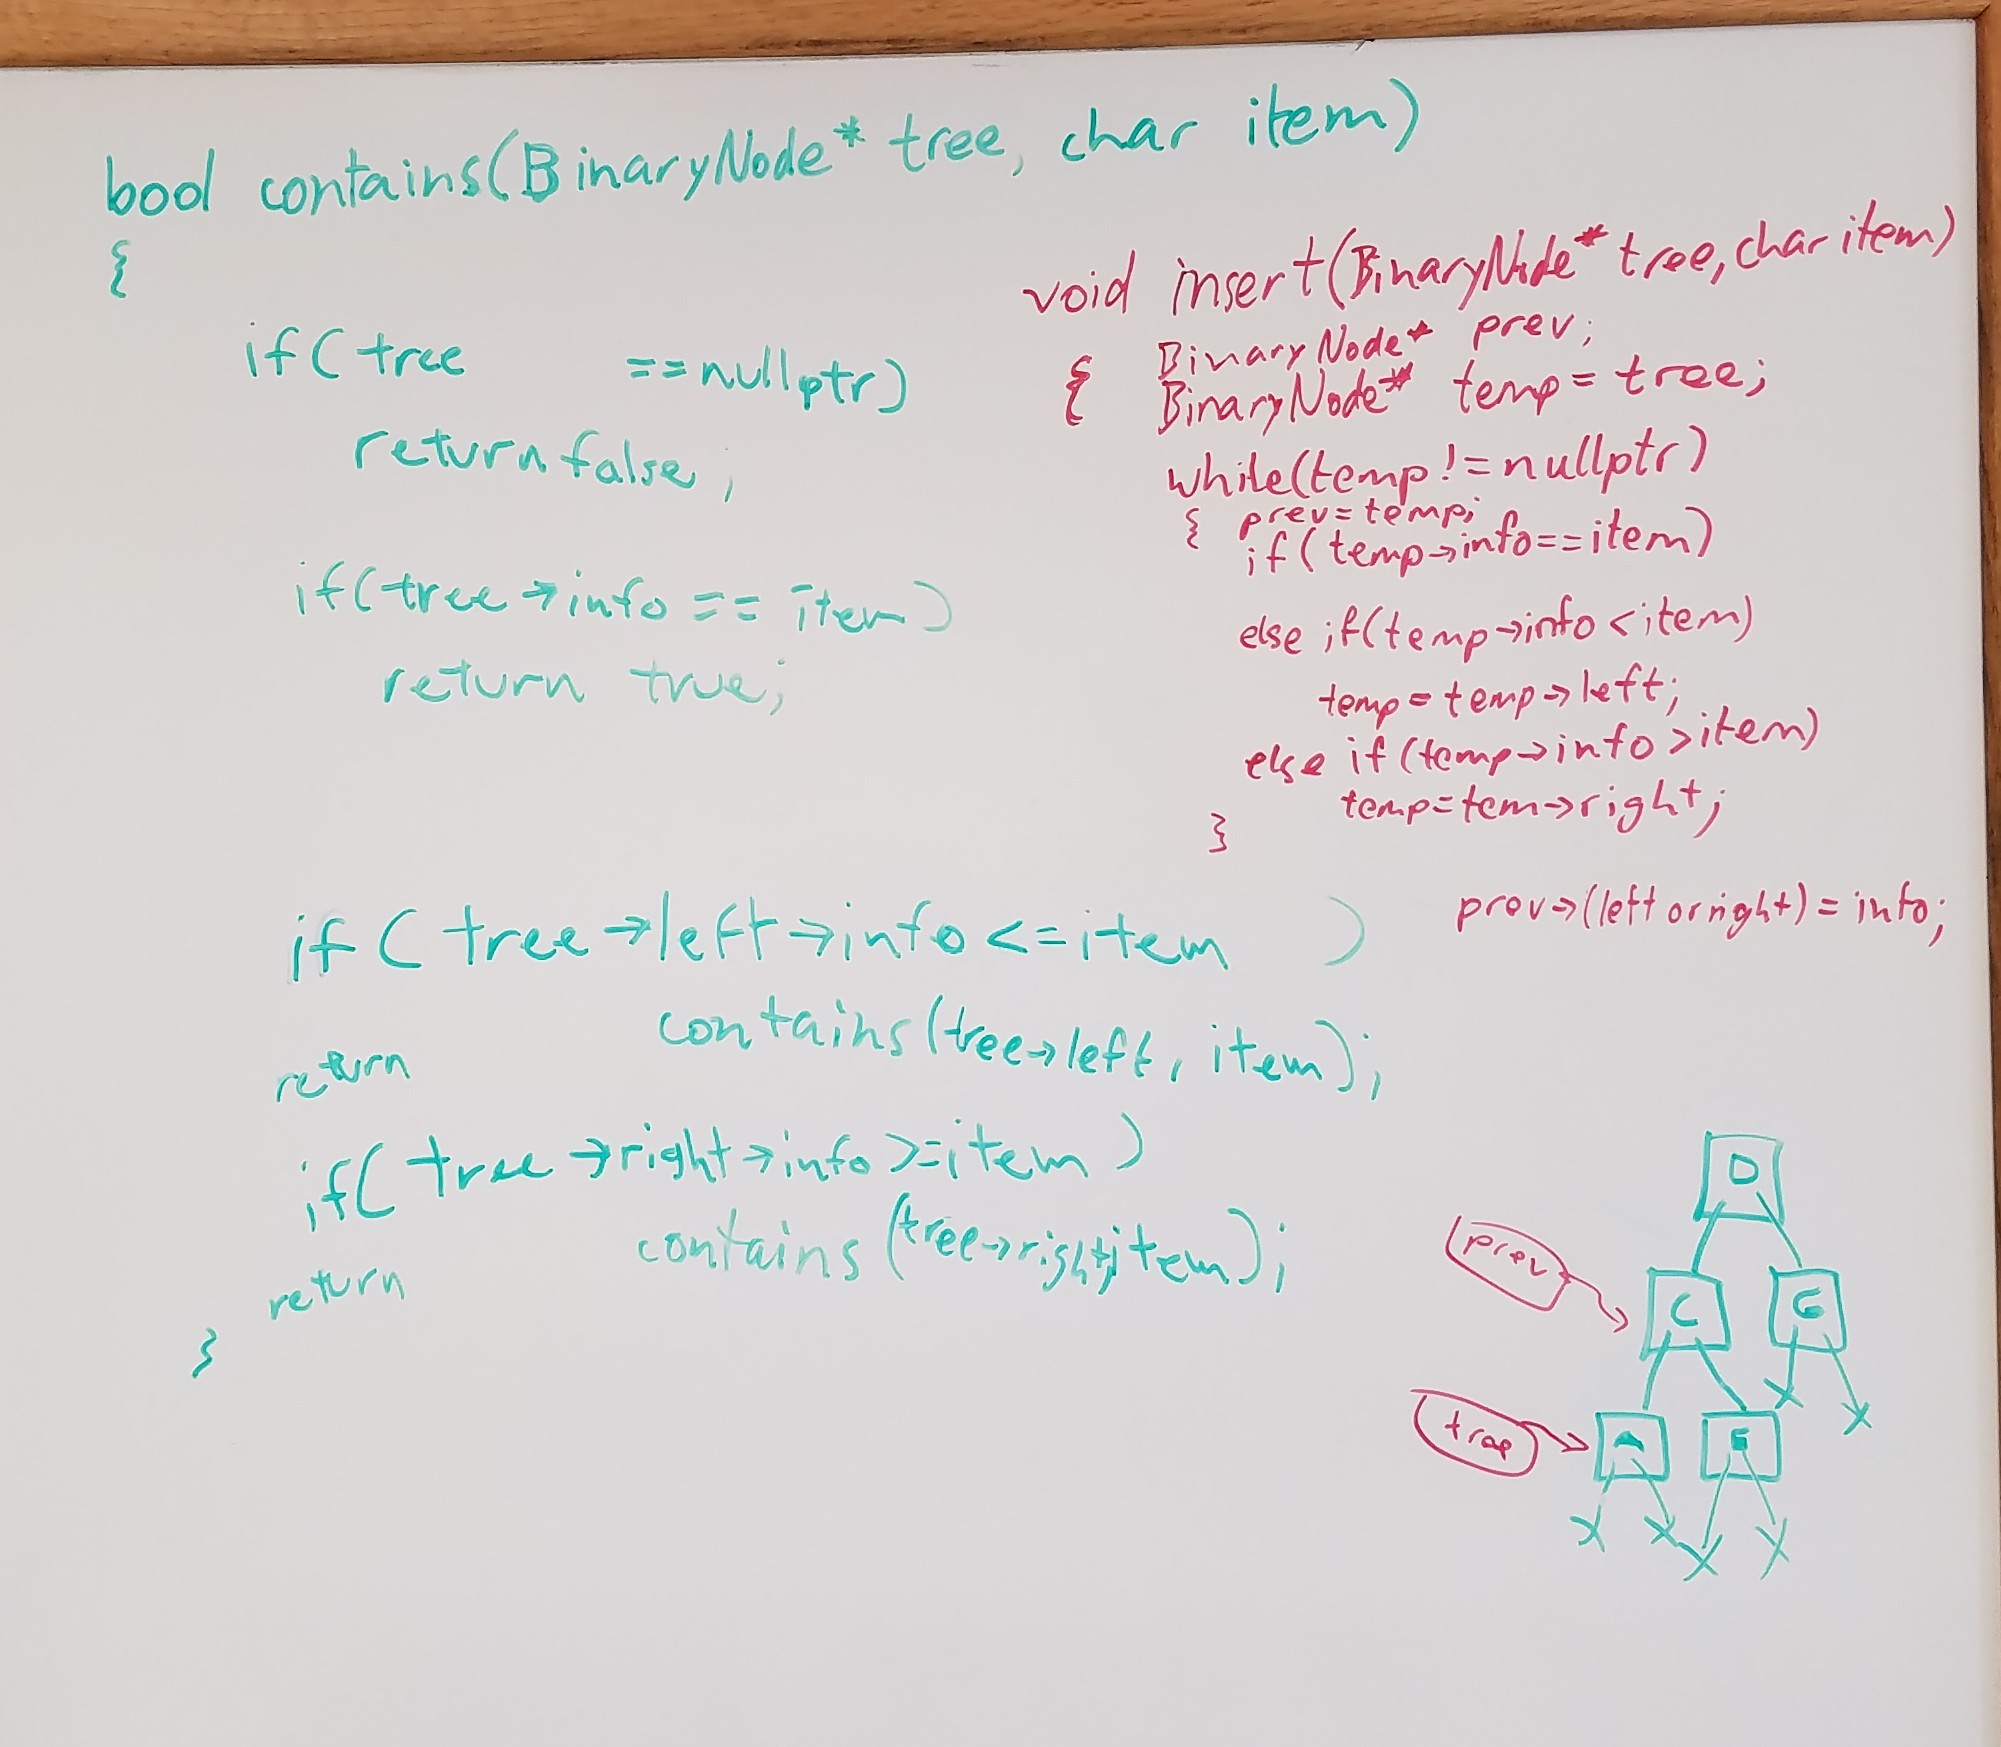 bool contains(BinaryNode* tree, char item)
{
if(tree ==nullptr)
return false;
if(tree→info == item)
return true;
if(tree→left→info<=item )
contains(tree→left, item);
return
if(tree→right→info>=item)
contains(tree→right, item);
return
}
void insert(BinaryNode* tree, char item)
BinaryNode* prev;
{ BinaryNode* temp = tree;
while(temp!=nullptr)
{ prev=temp;
if(temp→info==item)
else if(temp→info<item)
temp=temp→left;
else if(temp→info>item)
temp=tem→right;
}
prev→(left or right)=info;
D
prev
C
A